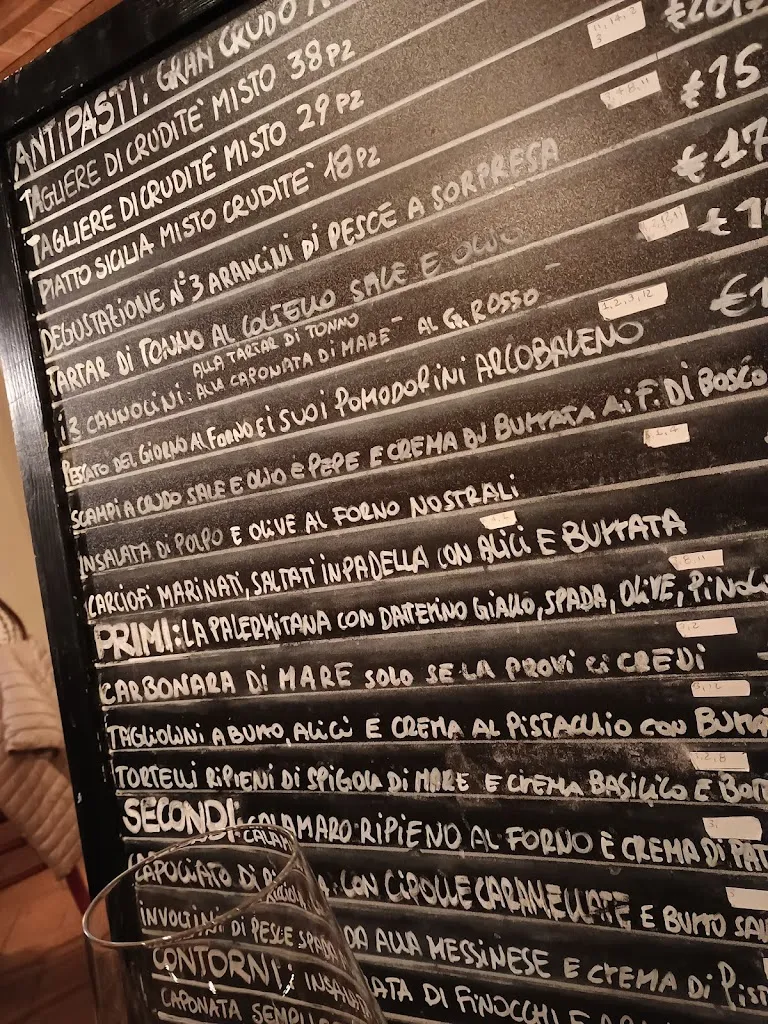 ANTIPASTI: GRAN CRUDO
TAGLIERE DI CRUDITE' MISTO 38PZ
TAGLIERE DI CRUDITE' MISTO 29PZ €15
PIATTO SICILIA MISTO CRUDITE' 18PZ €17
DEGUSTAZIONE N°3 ARANCINI DI PESCE A SORPRESA
TARTAR DI TONNO AL COLTELLO SALE E OLIO
ALLA TARTAR DI TONNO
i 3 CANNOLINI: ALLA CAPONATA DI MARE - AL G. ROSSO - 1,2,3,12
PESCATO DEL GIORNO AL FORNO E i SUOI POMODORINI ARCOBALENO
SCAMPI A CRUDO SALE E OLIO E PEPE E CREMA DI BURRATA Ai F. DI BOSCO
INSALATA DI POLPO E OLIVE AL FORNO NOSTRALI
CARCIOFI MARINATI, SALTATI IN PADELLA CON ALICI E BURRATA
PRIMI: LA PALERMITANA CON DATTERINO GIALLO, SPADA, OLIVE,
CARBONARA DI MARE SOLO SE LA PROVI CI CREDI
TAGLIOLINI A BURRO, ALICI E CREMA AL PISTACCHIO CON
TORTELLI RIPIENI DI SPIGOLA DI MARE E CREMA BASILICO E
SECONDI: CALAMARO RIPIENO AL FORNO E CREMA DI
CAPULIATO DI CON CIPOLLE CARAMELLATE E BURRO
INVOLTINI DI PESCE SPADA ALLA MESSINESE E CREMA DI
CONTORNI: DI FINOCCHI E
CAPONATA